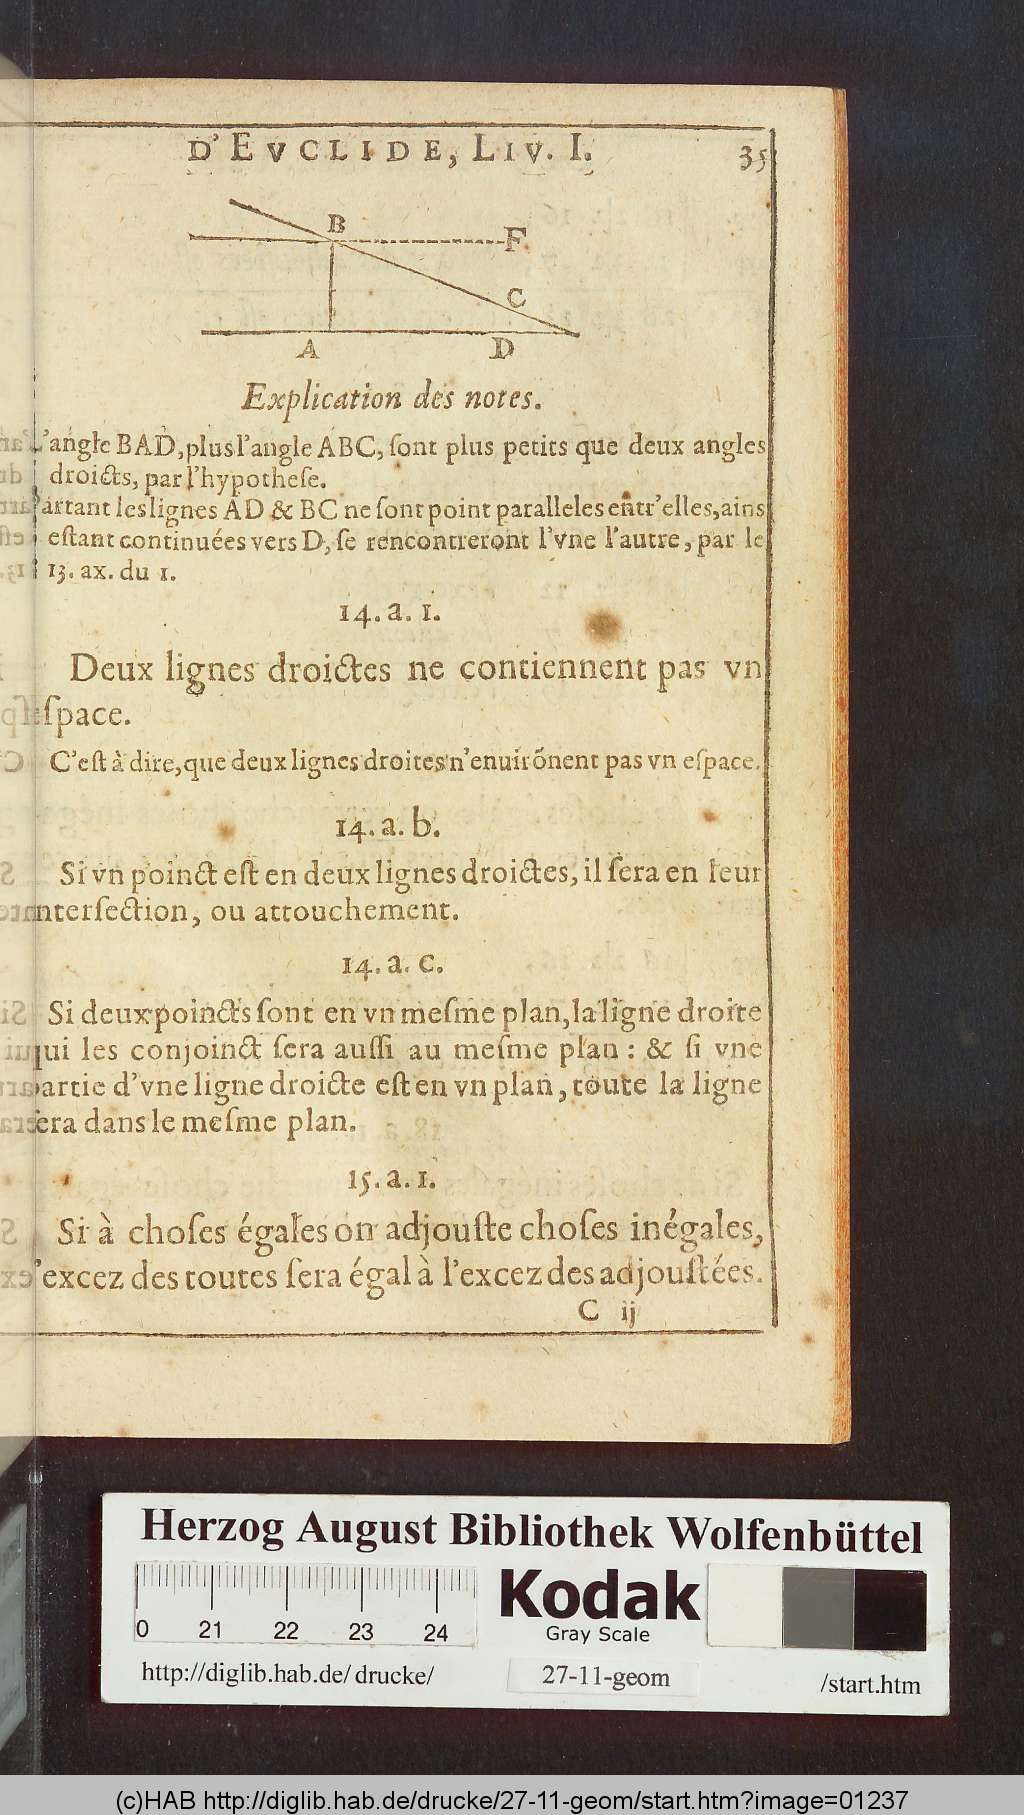 D'EVCLIDE, LIV. I. 35
B
F
C
A D
Explication des notes.
L'angle BAD, plus l'angle ABC, ſont plus petits que deux angles
droicts, par l'hypotheſe.
Partant les lignes AD & BC ne ſont point paralleles entr'elles, ains
eſtant continuées vers D, ſe rencontreront l'vne l'autre, par le
13. ax. du 1.
14. a. 1.
Deux lignes droictes ne contiennent pas vn
eſpace.
C'eſt à dire, que deux lignes droites n'enuirőnent pas vn eſpace.
14. a. b.
Si vn poinct eſt en deux lignes droictes, il ſera en leur
interſection, ou attouchement.
14. a. c.
Si deux poincts ſont en vn meſme plan, la ligne droite
qui les conjoinct ſera auſſi au meſme plan : & ſi vne
partie d'vne ligne droicte eſt en vn plan, toute la ligne
ſera dans le meſme plan.
15. a. 1.
Si à choſes égales on adjouſte choſes inégales,
l'excez des toutes ſera égal à l'excez des adjouſtées.
C ij
Herzog August Bibliothek Wolfenbüttel
0 21 22 23 24
Kodak
Gray Scale
http://diglib.hab.de/drucke/ 27-11-geom /start.htm
(c)HAB http://diglib.hab.de/drucke/27-11-geom/start.htm?image=01237